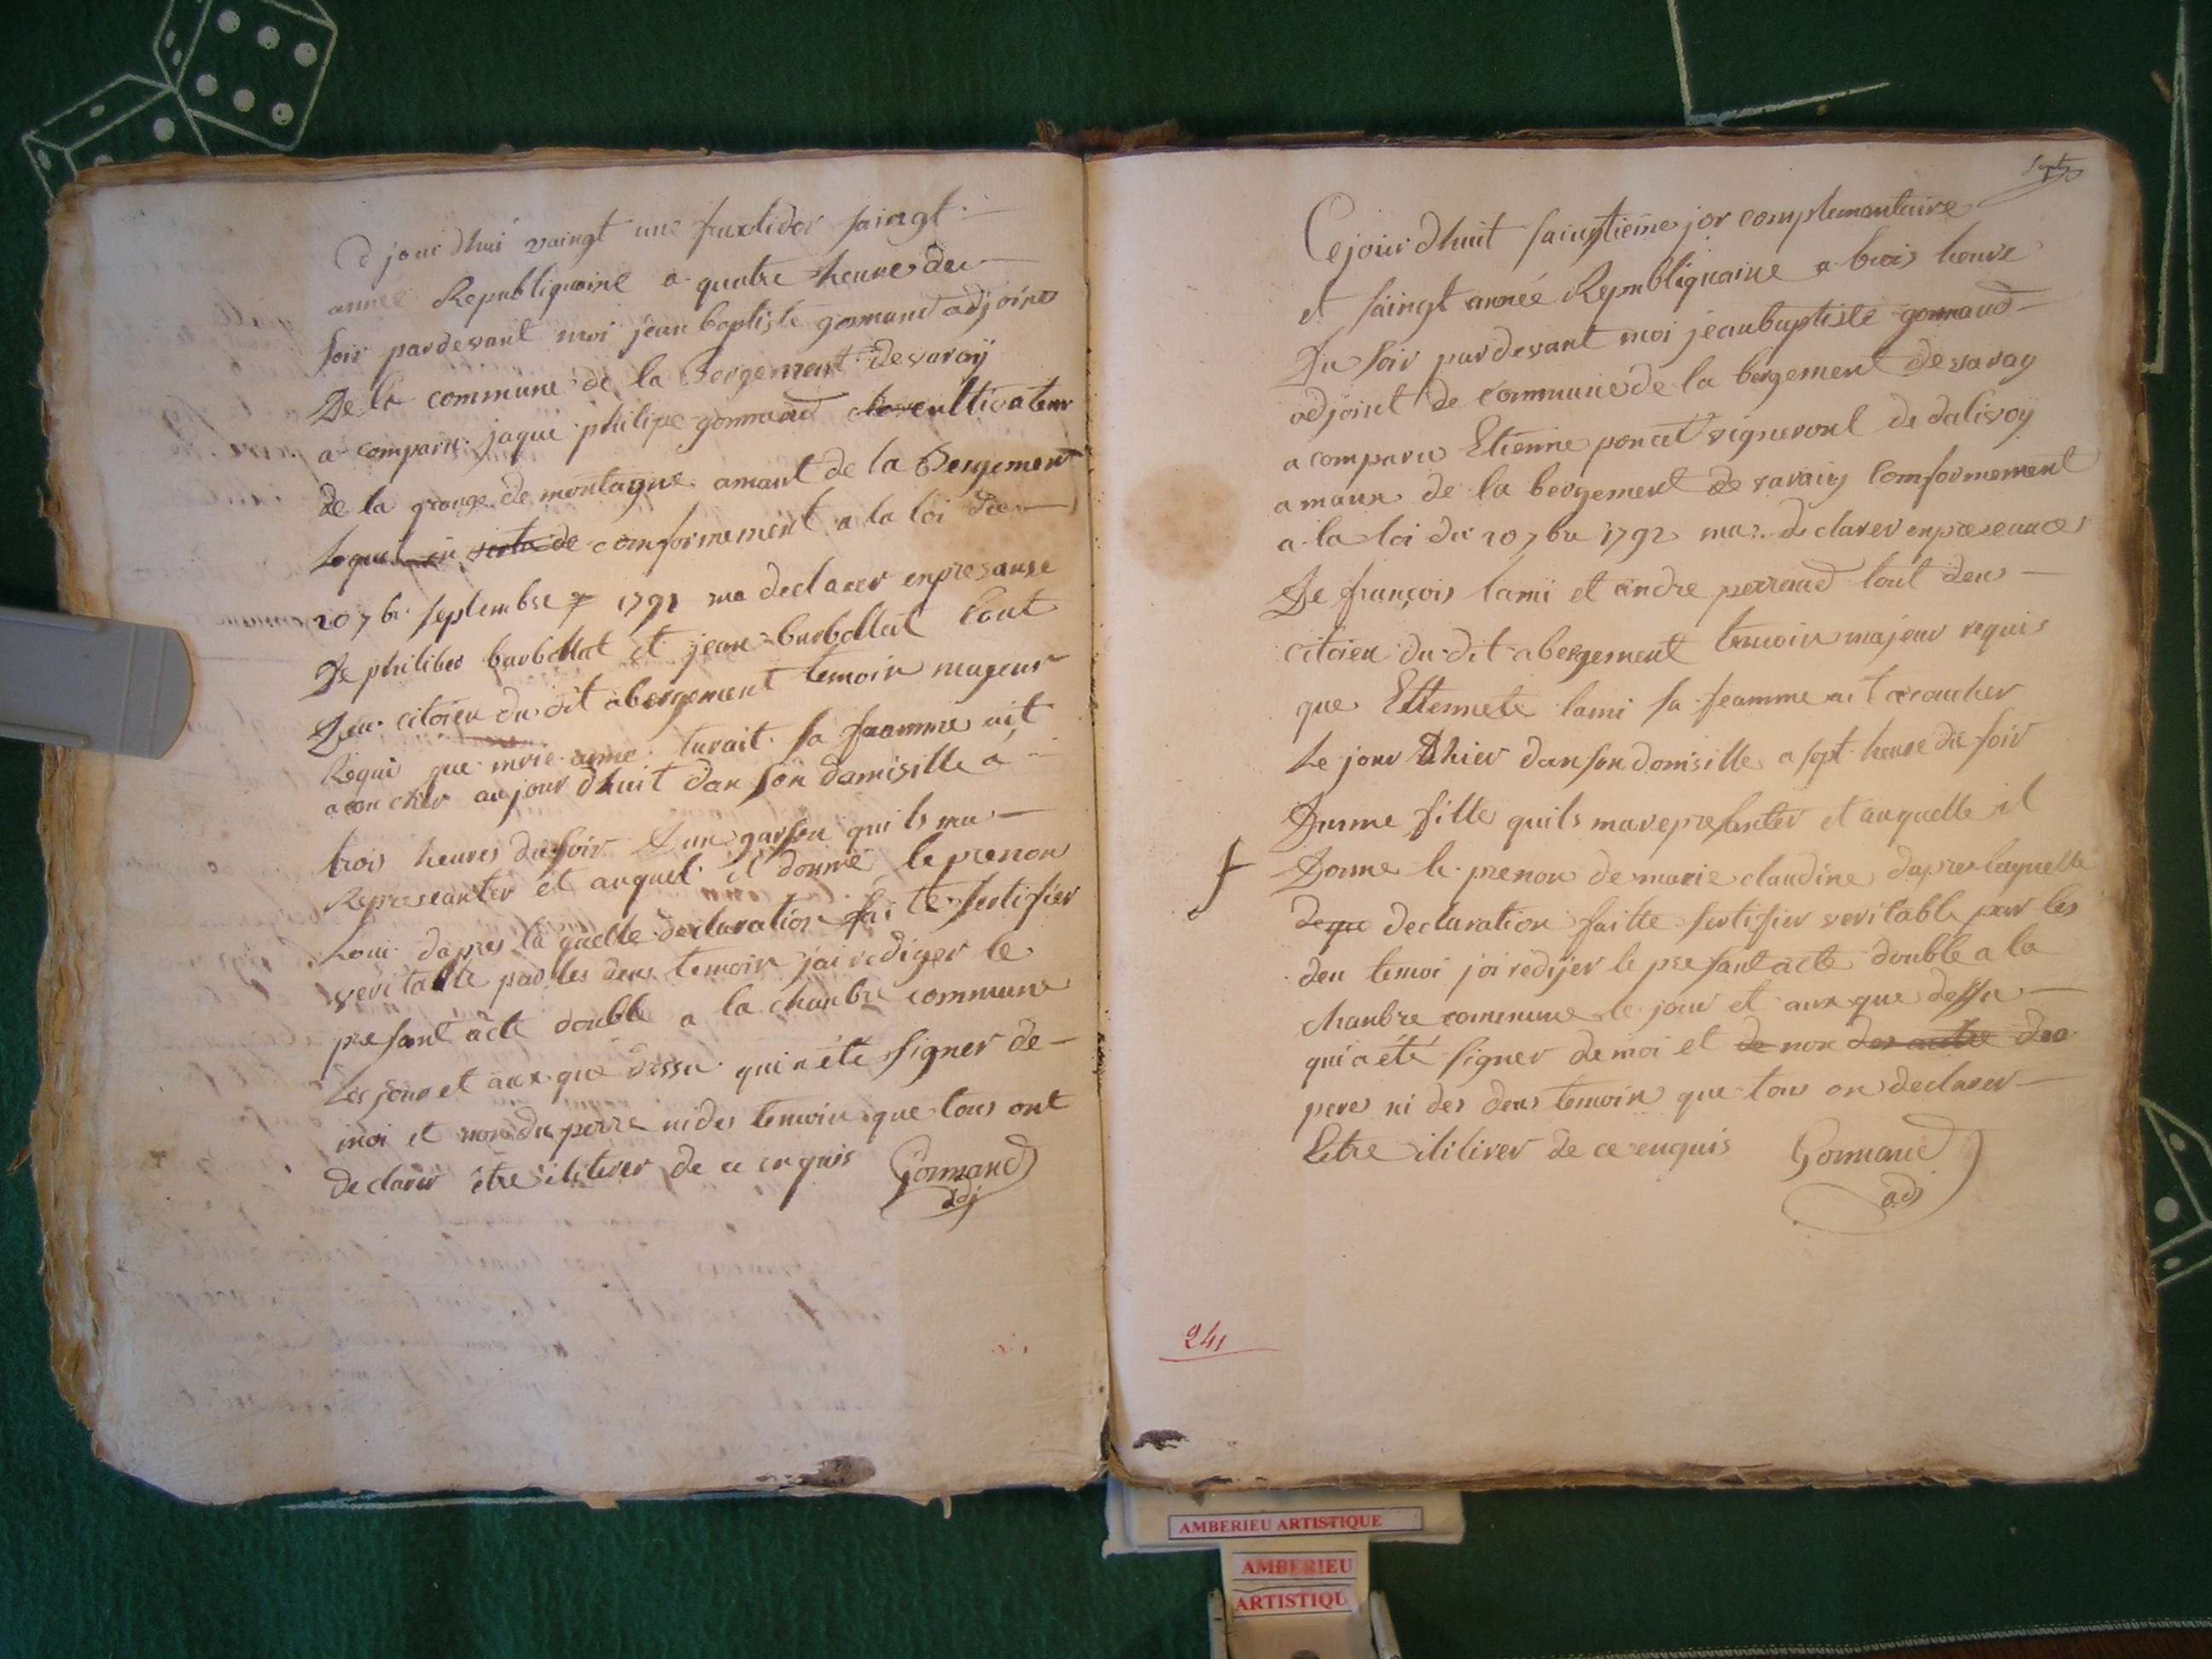 Ce jour dhui vaingt une fruxtidor saingt
année Republiquaine a quatre heure du
soir pardevant moi jean baptiste gonnand adjoint
De la commune de la Bergement devaraÿ
a comparu jaque philipe gonnand cultivateur
de la grange de montagne amant de la Bergement
lequel en vertu de comformement a la loi du
20 7br septembre 1792 ma declarer enpresanse
De philiber barbollat et jean barbollat tout
Deu citoien du dit abergement temoin mageur
Requi que marie anne turait sa feamme ait
acoucher aujour dhuit dan son damisille a
trois heures du soir d'un garson quils ma
Represeanter et auquel il donne le prenon
Loui dapres la quelle declaration faite sertifier
veritable par les deus temoin jai rediger le
presant acte double a la chanbre commune
Les jour et aux que dessu qui a été signer de
moi et non du perre ni des temoin que tous ont
declarer être iliterer de ce enquis Gonnand
adj
Sept
Cejour dhuit saingtieme jor complementaire
et saingt année Republiquaine a trois heure
Du soir pardevant moi jeanbaptiste gonnand
adjoint de commune de la bergement de varay
a comparu Etienne poncet vigneront de dalivoy
amanx de la bergement de varaiy comformement
a la loi du 20 7br 1792 ma declarer enpreseance
De françois lami et andre perraud tout deus
citoien du dit abergement temoin majeur requis
que Ettennete lami sa feamme ait acoucher
Le jour dhier dan son domisille a sept heure du soir
Dunne fille quils ma represanter et auquelle il
Donne le prenon de marie claudine dapres laquelle
deque declaration faitte sertifier veritable par les
deu temoi jai redijer le presant acte double a la
chanbre commune le jour et aux que dessu
qui a été signer de moi et de non des autre du
pere ni des deus temoin que tous on declarer
Letre ililirer de ce enquis Gonnand
adj
241
AMBERIEU ARTISTIQUE
AMBERIEU
ARTISTIQU